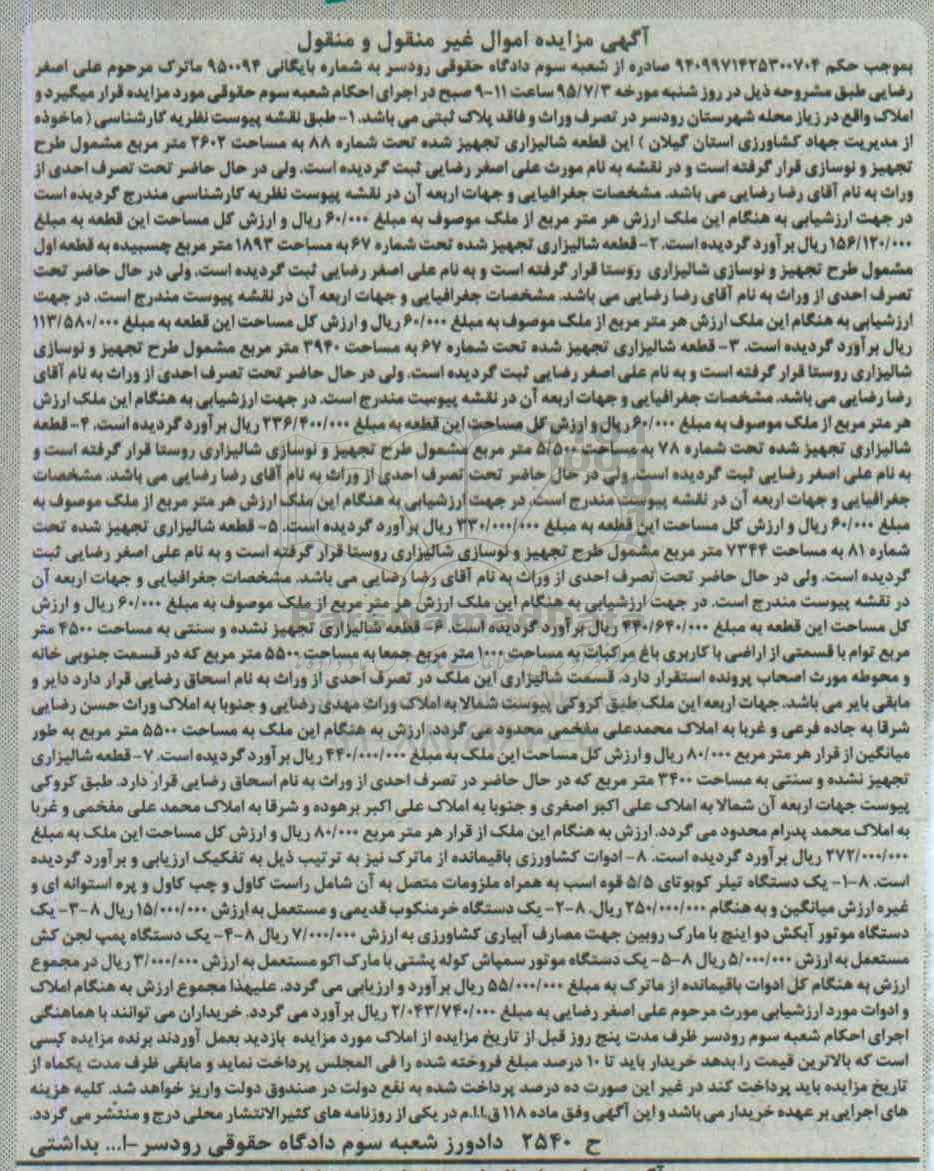 آگهی مزایده اموال غیر منقول و منقول
بموجب حکم ۹۴۰۹۹۷۱۴۲۵۳۰۰۷۰۴ صادره از شعبه سوم دادگاه حقوقی رودسر به شماره بایگانی ۹۵۰۰۹۴ ماترک مرحوم علی اصغر
رضایی طبق مشروحه ذیل در روز شنبه مورخه ۹۵/۷/۳ ساعت ۱۱-۹ صبح در اجرای احکام شعبه سوم حقوقی مورد مزایده قرار میگیرد و
املاک واقع در زیاز محله شهرستان رودسر در تصرف وراث و فاقد پلاک ثبتی می باشد. ۱- طبق نقشه پیوست نظریه کارشناسی ( ماخوذه
از مدیریت جهاد کشاورزی استان گیلان ) این قطعه شالیزاری تجهیز شده تحت شماره ۸۸ به مساحت ۲۶۰۲ متر مربع مشمول طرح
تجهیز و نوسازی قرار گرفته است و در نقشه به نام مورث علی اصغر رضایی ثبت گردیده است. ولی در حال حاضر تحت تصرف احدی از
وراث به نام آقای رضا رضایی می باشد. مشخصات جغرافیایی و جهات اربعه آن در نقشه پیوست نظریه کارشناسی مندرج گردیده است
در جهت ارزشیابی به هنگام این ملک ارزش هر متر مربع از ملک موصوف به مبلغ ۶۰/۰۰۰ ریال و ارزش کل مساحت این قطعه به مبلغ
۱۵۶/۱۲۰/۰۰۰ ریال برآورد گردیده است. ۲- قطعه شالیزاری تجهیز شده تحت شماره ۶۷ به مساحت ۱۸۹۳ متر مربع چسبیده به قطعه اول
مشمول طرح تجهیز و نوسازی شالیزاری روستا قرار گرفته است و به نام علی اصغر رضایی ثبت گردیده است. ولی در حال حاضر تحت
تصرف احدی از وراث به نام آقای رضا رضایی می باشد. مشخصات جغرافیایی و جهات اربعه آن در نقشه پیوست مندرج است. در جهت
ارزشیابی به هنگام این ملک ارزش هر متر مربع از ملک موصوف به مبلغ ۶۰/۰۰۰ ریال و ارزش کل مساحت این قطعه به مبلغ ۱۱۳/۵۸۰/۰۰۰
ریال برآورد گردیده است. ۳- قطعه شالیزاری تجهیز شده تحت شماره ۶۷ به مساحت ۳۹۴۰ متر مربع مشمول طرح تجهیز و نوسازی
شالیزاری روستا قرار گرفته است و به نام علی اصغر رضایی ثبت گردیده است. ولی در حال حاضر تحت تصرف احدی از وراث به نام آقای
رضا رضایی می باشد. مشخصات جغرافیایی و جهات اربعه آن در نقشه پیوست مندرج است. در جهت ارزشیابی به هنگام این ملک ارزش
هر متر مربع از ملک موصوف به مبلغ ۶۰/۰۰۰ ریال و ارزش کل مساحت این قطعه به مبلغ ۲۳۶/۴۰۰/۰۰۰ ریال برآورد گردیده است. ۴- قطعه
شالیزاری تجهیز شده تحت شماره ۷۸ به مساحت ۵/۵۰۰ متر مربع مشمول طرح تجهیز و نوسازی شالیزاری روستا قرار گرفته است و
به نام علی اصغر رضایی ثبت گردیده است. ولی در حال حاضر تحت تصرف احدی از وراث به نام آقای رضا رضایی می باشد. مشخصات
جغرافیایی و جهات اربعه آن در نقشه پیوست مندرج است. در جهت ارزشیابی به هنگام این ملک ارزش هر متر مربع از ملک موصوف به
مبلغ ۶۰/۰۰۰ ریال و ارزش کل مساحت این قطعه به مبلغ ۳۳۰/۰۰۰/۰۰۰ ریال برآورد گردیده است. ۵- قطعه شالیزاری تجهیز شده تحت
شماره ۸۱ به مساحت ۷۳۴۴ متر مربع مشمول طرح تجهیز و نوسازی شالیزاری روستا قرار گرفته است و به نام علی اصغر رضایی ثبت
گردیده است. ولی در حال حاضر تحت تصرف احدی از وراث به نام آقای رضا رضایی می باشد. مشخصات جغرافیایی و جهات اربعه آن
در نقشه پیوست مندرج است. در جهت ارزشیابی به هنگام این ملک ارزش هر متر مربع از ملک موصوف به مبلغ ۶۰/۰۰۰ ریال و ارزش
کل مساحت این قطعه به مبلغ ۴۴۰/۶۴۰/۰۰۰ ریال برآورد گردیده است. ۶- قطعه شالیزاری تجهیز نشده و سنتی به مساحت ۴۵۰۰ متر
مربع توام با قسمتی از اراضی با کاربری باغ مرکبات به مساحت ۱۰۰۰ متر مربع جمعا به مساحت ۵۵۰۰ متر مربع که در قسمت جنوبی خانه
و محوطه مورث اصحاب پرونده استقرار دارد. قسمت شالیزاری این ملک در تصرف احدی از وراث به نام اسحاق رضایی قرار دارد دایر و
مابقی بایر می باشد. جهات اربعه این ملک طبق کروکی پیوست شمالا به املاک وراث مهدی رضایی و جنوبا به املاک وراث حسن رضایی
شرقا به جاده فرعی و غربا به املاک محمدعلی مفخمی محدود می گردد. ارزش به هنگام این ملک به مساحت ۵۵۰۰ متر مربع به طور
میانگین از قرار هر متر مربع ۸۰/۰۰۰ ریال و ارزش کل مساحت این ملک به مبلغ ۴۴۰/۰۰۰/۰۰۰ ریال برآورد گردیده است. ۷- قطعه شالیزاری
تجهیز نشده و سنتی به مساحت ۳۴۰۰ متر مربع که در حال حاضر در تصرف احدی از وراث به نام اسحاق رضایی قرار دارد. طبق کروکی
پیوست جهات اربعه آن شمالا به املاک علی اکبر اصغری و جنوبا به املاک علی اکبر برهوده و شرقا به املاک محمد علی مفخمی و غربا
به املاک محمد پدرام محدود می گردد. ارزش به هنگام این ملک از قرار هر متر مربع ۸۰/۰۰۰ ریال و ارزش کل مساحت این ملک به مبلغ
۲۷۲/۰۰۰/۰۰۰ ریال برآورد گردیده است. ۸- ادوات کشاورزی باقیمانده از ماترک نیز به ترتیب ذیل به تفکیک ارزیابی و برآورد گردیده
است. ۸-۱- یک دستگاه تیلر کوبوتای ۵/۵ قوه اسب به همراه ملزومات متصل به آن شامل راست کاول و چپ کاول و پره استوانه ای و
غیره ارزش میانگین و به هنگام ۲۵۰/۰۰۰/۰۰۰ ریال. ۸-۲- یک دستگاه خرمنکوب قدیمی و مستعمل به ارزش ۱۵/۰۰۰/۰۰۰ ریال ۸-۳- یک
دستگاه موتور آبکش دو اینچ با مارک روبین جهت مصارف آبیاری کشاورزی به ارزش ۷/۰۰۰/۰۰۰ ریال ۸-۴- یک دستگاه پمپ لجن کش
مستعمل به ارزش ۵/۰۰۰/۰۰۰ ریال ۸-۵- یک دستگاه موتور سمپاش کوله پشتی با مارک اکو مستعمل به ارزش ۳/۰۰۰/۰۰۰ ریال در مجموع
ارزش به هنگام کل ادوات باقیمانده از ماترک به مبلغ ۵۵/۰۰۰/۰۰۰ ریال برآورد و ارزیابی می گردد. علیهذا مجموع ارزش به هنگام املاک
و ادوات مورد ارزشیابی مورث مرحوم علی اصغر رضایی به مبلغ ۲/۰۴۳/۷۴۰/۰۰۰ ریال برآورد می گردد. خریداران می توانند با هماهنگی
اجرای احکام شعبه سوم رودسر ظرف مدت پنج روز قبل از تاریخ مزایده از املاک مورد مزایده بازدید بعمل آوردند برنده مزایده کسی
است که بالاترین قیمت را بدهد خریدار باید تا ۱۰ درصد مبلغ فروخته شده را فی المجلس پرداخت نماید و مابقی ظرف مدت یکماه از
تاریخ مزایده باید پرداخت کند در غیر این صورت ده درصد پرداخت شده به نفع دولت در صندوق دولت واریز خواهد شد. کلیه هزینه
های اجرایی بر عهده خریدار می باشد و این آگهی وفق ماده ۱۱۸ ق.ا.ا.م در یکی از روزنامه های کثیرالانتشار محلی درج و منتشر می گردد.
ح ۲۵۴۰ دادورز شعبه سوم دادگاه حقوقی رودسر-ا... بداشتی